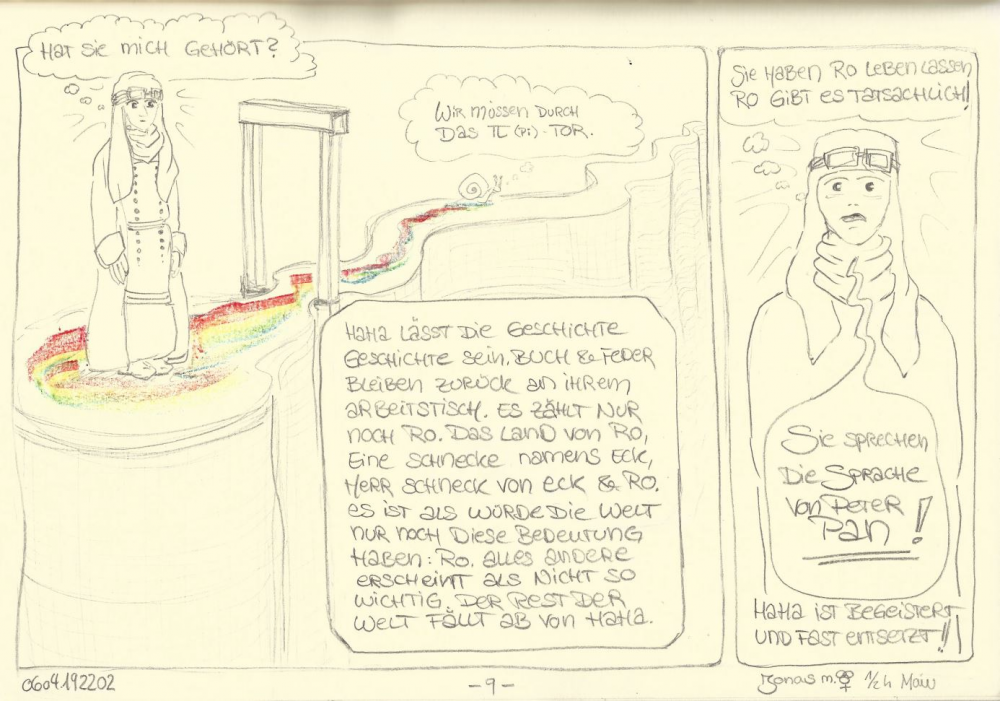 HAT SIE MICH GEHÖRT?
WIR MÜSSEN DURCH
DAS π (Pi)-TOR.
HAHA LÄSST DIE GESCHICHTE
GESCHICHTE SEIN, BUCH & FEDER
BLEIBEN ZURÜCK AN IHREM
ARBEITSTISCH. ES ZÄHLT NUR
NOCH RO. DAS LAND VON RO,
EINE SCHNECKE NAMENS ECK,
HERR SCHNECK VON ECK & RO.
ES IST ALS WÜRDE DIE WELT
NUR NOCH DIESE BEDEUTUNG
HABEN: RO. ALLES ANDERE
ERSCHEINT ALS NICHT SO
WICHTIG. DER REST DER
WELT FÄLLT AB VON HAHA.
SIE HABEN RO LEBEN LASSEN
RO GIBT ES TATSÄCHLICH!
SIE SPRECHEN
DIE SPRACHE
VON PETER
PAN!
HAHA IST BEGEISTERT
UND FAST ENTSETZT!!
0604192202
-9-
Jonas m. 1/2 h